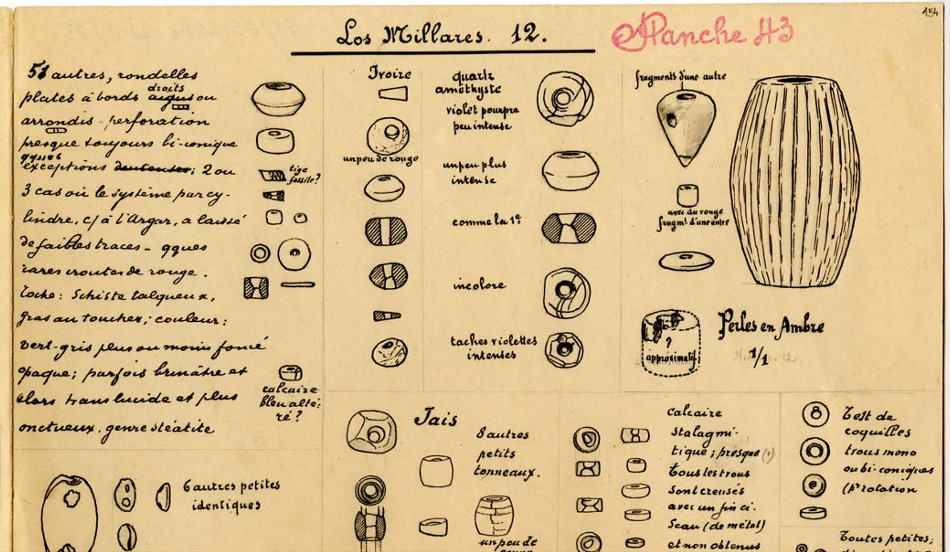 154
Los Millares. 12.
Planche 43
51 autres, rondelles
droits
plates à bords aigus ou
arrondis - perforation
presque toujours bi-conique
qques
exceptions douteuses; 2 ou
3 cas où le système par cy-
lindre, c/ à l'Argar, a laissé
de faibles traces - qques
rares croutes de rouge.
Roche: Schiste talqueux,
gras au toucher; couleur:
vert-gris plus ou moins foncé
opaque; parfois brunâtre et
alors translucide et plus
onctueux, genre stéatite
tige
fossile?
calcaire
bleu alté-
ré?
Ivoire
un peu de rouge
quartz
améthyste
violet pourpre
peu intense
un peu plus
intense
comme la 1e
incolore
taches violettes
intenses
fragments d'une autre
avec du rouge
fragmt d'une autre
?
approximatif
Perles en Ambre
1/1
6 autres petites
identiques
Jais
8 autres
petits
tonneaux.
un peu de
calcaire
Stalagmi-
tique; presque (1)
tous les trous
sont creusés
avec un fin ci-
seau (de métal)
et non obtenus
Test de
coquilles
trous mono
ou bi-coniques
(pr rotation
Toutes petites;